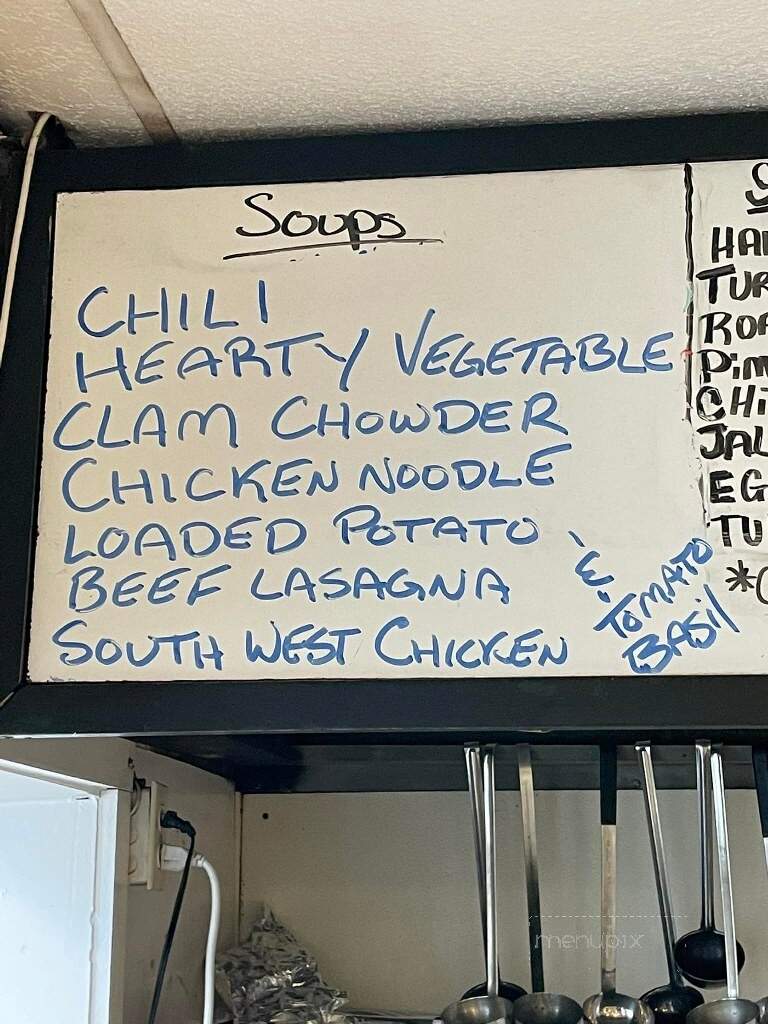 Soups
CHILI
HEARTY VEGETABLE
CLAM CHOWDER
CHICKEN NOODLE
LOADED POTATO
BEEF LASAGNA
SOUTH WEST CHICKEN
TOMATO
BASIL
HA
TUR
ROA
PiM
CHi
JAL
EG
TU
menupix